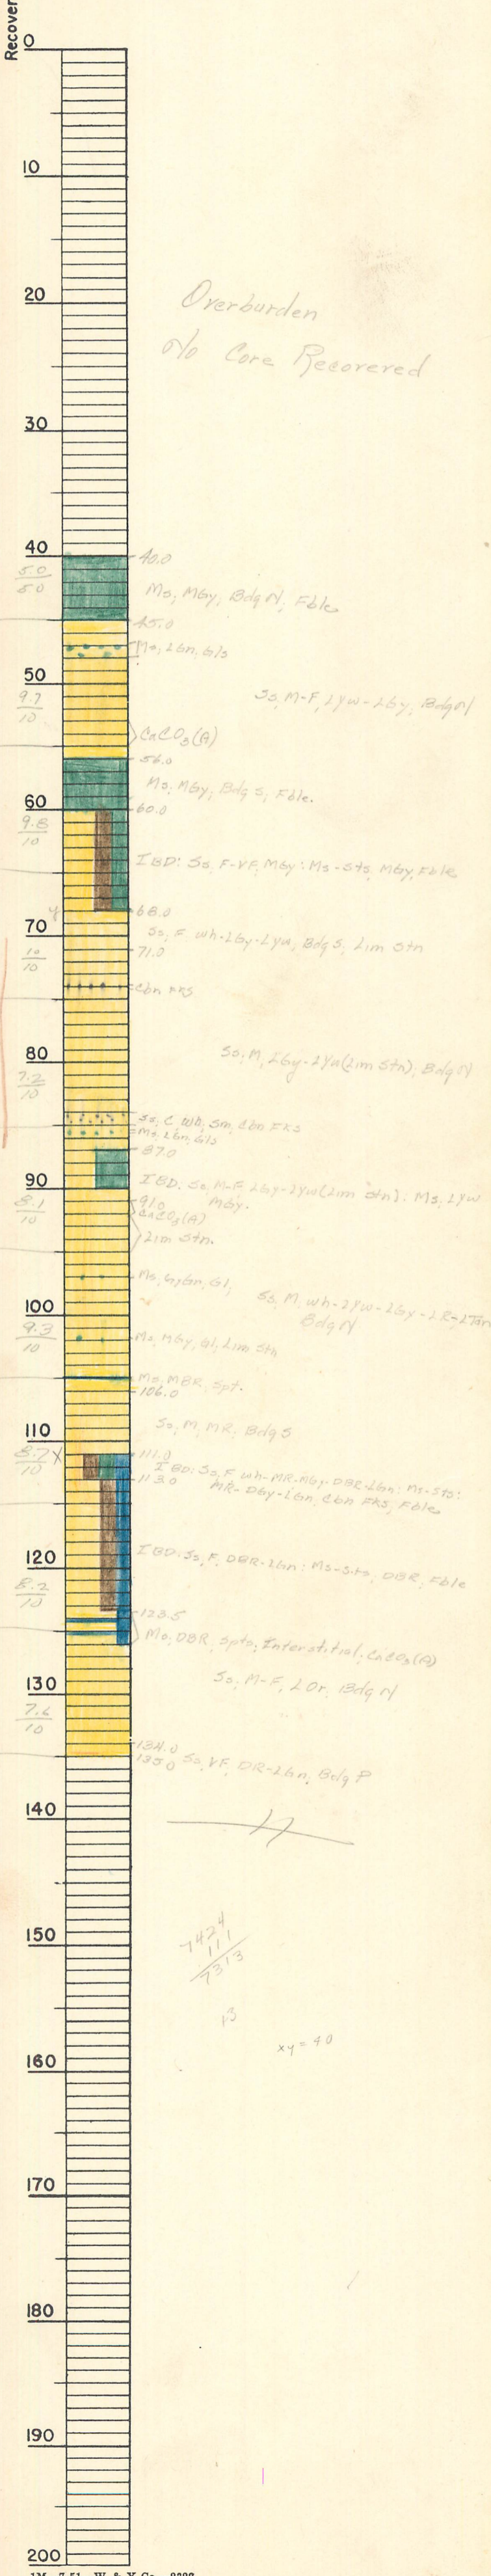 Recover
0
10
20
Overburden
No Core Recovered
30
40
40.0
5.0
5.0
Ms, MGy, Bdg N, Fble
45.0
Ms, LGn, Gls
50
9.7
10
Ss, M-F, Lyw-LGy, Bdg N
CaCO3(A)
56.0
Ms, MGy, Bdg S, Fble.
60
60.0
9.8
10
IBD: Ss, F-VF, MGy: Ms-Sts, MGy, Fble
y
68.0
70
Ss, F, wh-LGy-Lyw, Bdg S, Lim Stn
71.0
10
10
Cbn FKS
80
Ss, M, LGy-Lyw(Lim Stn), Bdg N
7.2
10
Ss, C, wh, Sm, Cbn FKS
Ms, LGn, Gls
87.0
90
IBD: Ss, M-F, LGy-Lyw(Lim Stn): Ms, Lyw
MGy.
91.0
8.1
10
CaCO3(A)
Lim Stn.
Ms, GyGn, Gl,
100
Ss, M, wh-Lyw-LGy-LR-LTan
Bdg N
9.3
10
Ms, MGy, Gl, Lim Stn
Ms, MBR, Spt.
106.0
110
Ss, M, MR, Bdg S
8.7
10
X
111.0
IBD: Ss, F wh-MR-MGy-DBR-LGn: Ms-Sts:
113.0
MR-DGy-LGn, Cbn FKS, Fble
120
IBD: Ss, F, DBR-LGn: Ms-Sts, DBR, Fble
8.2
10
123.5
Ms, DBR, Spts, Interstitial, CaCO3(A)
130
Ss, M-F, LOr, Bdg N
7.6
10
134.0
135.0
Ss, VF, DR-LGn, Bdg P
140
150
7424
111
7313
13
160
xy = 40
170
180
190
200
1M-7-51-W. & Y. Co.